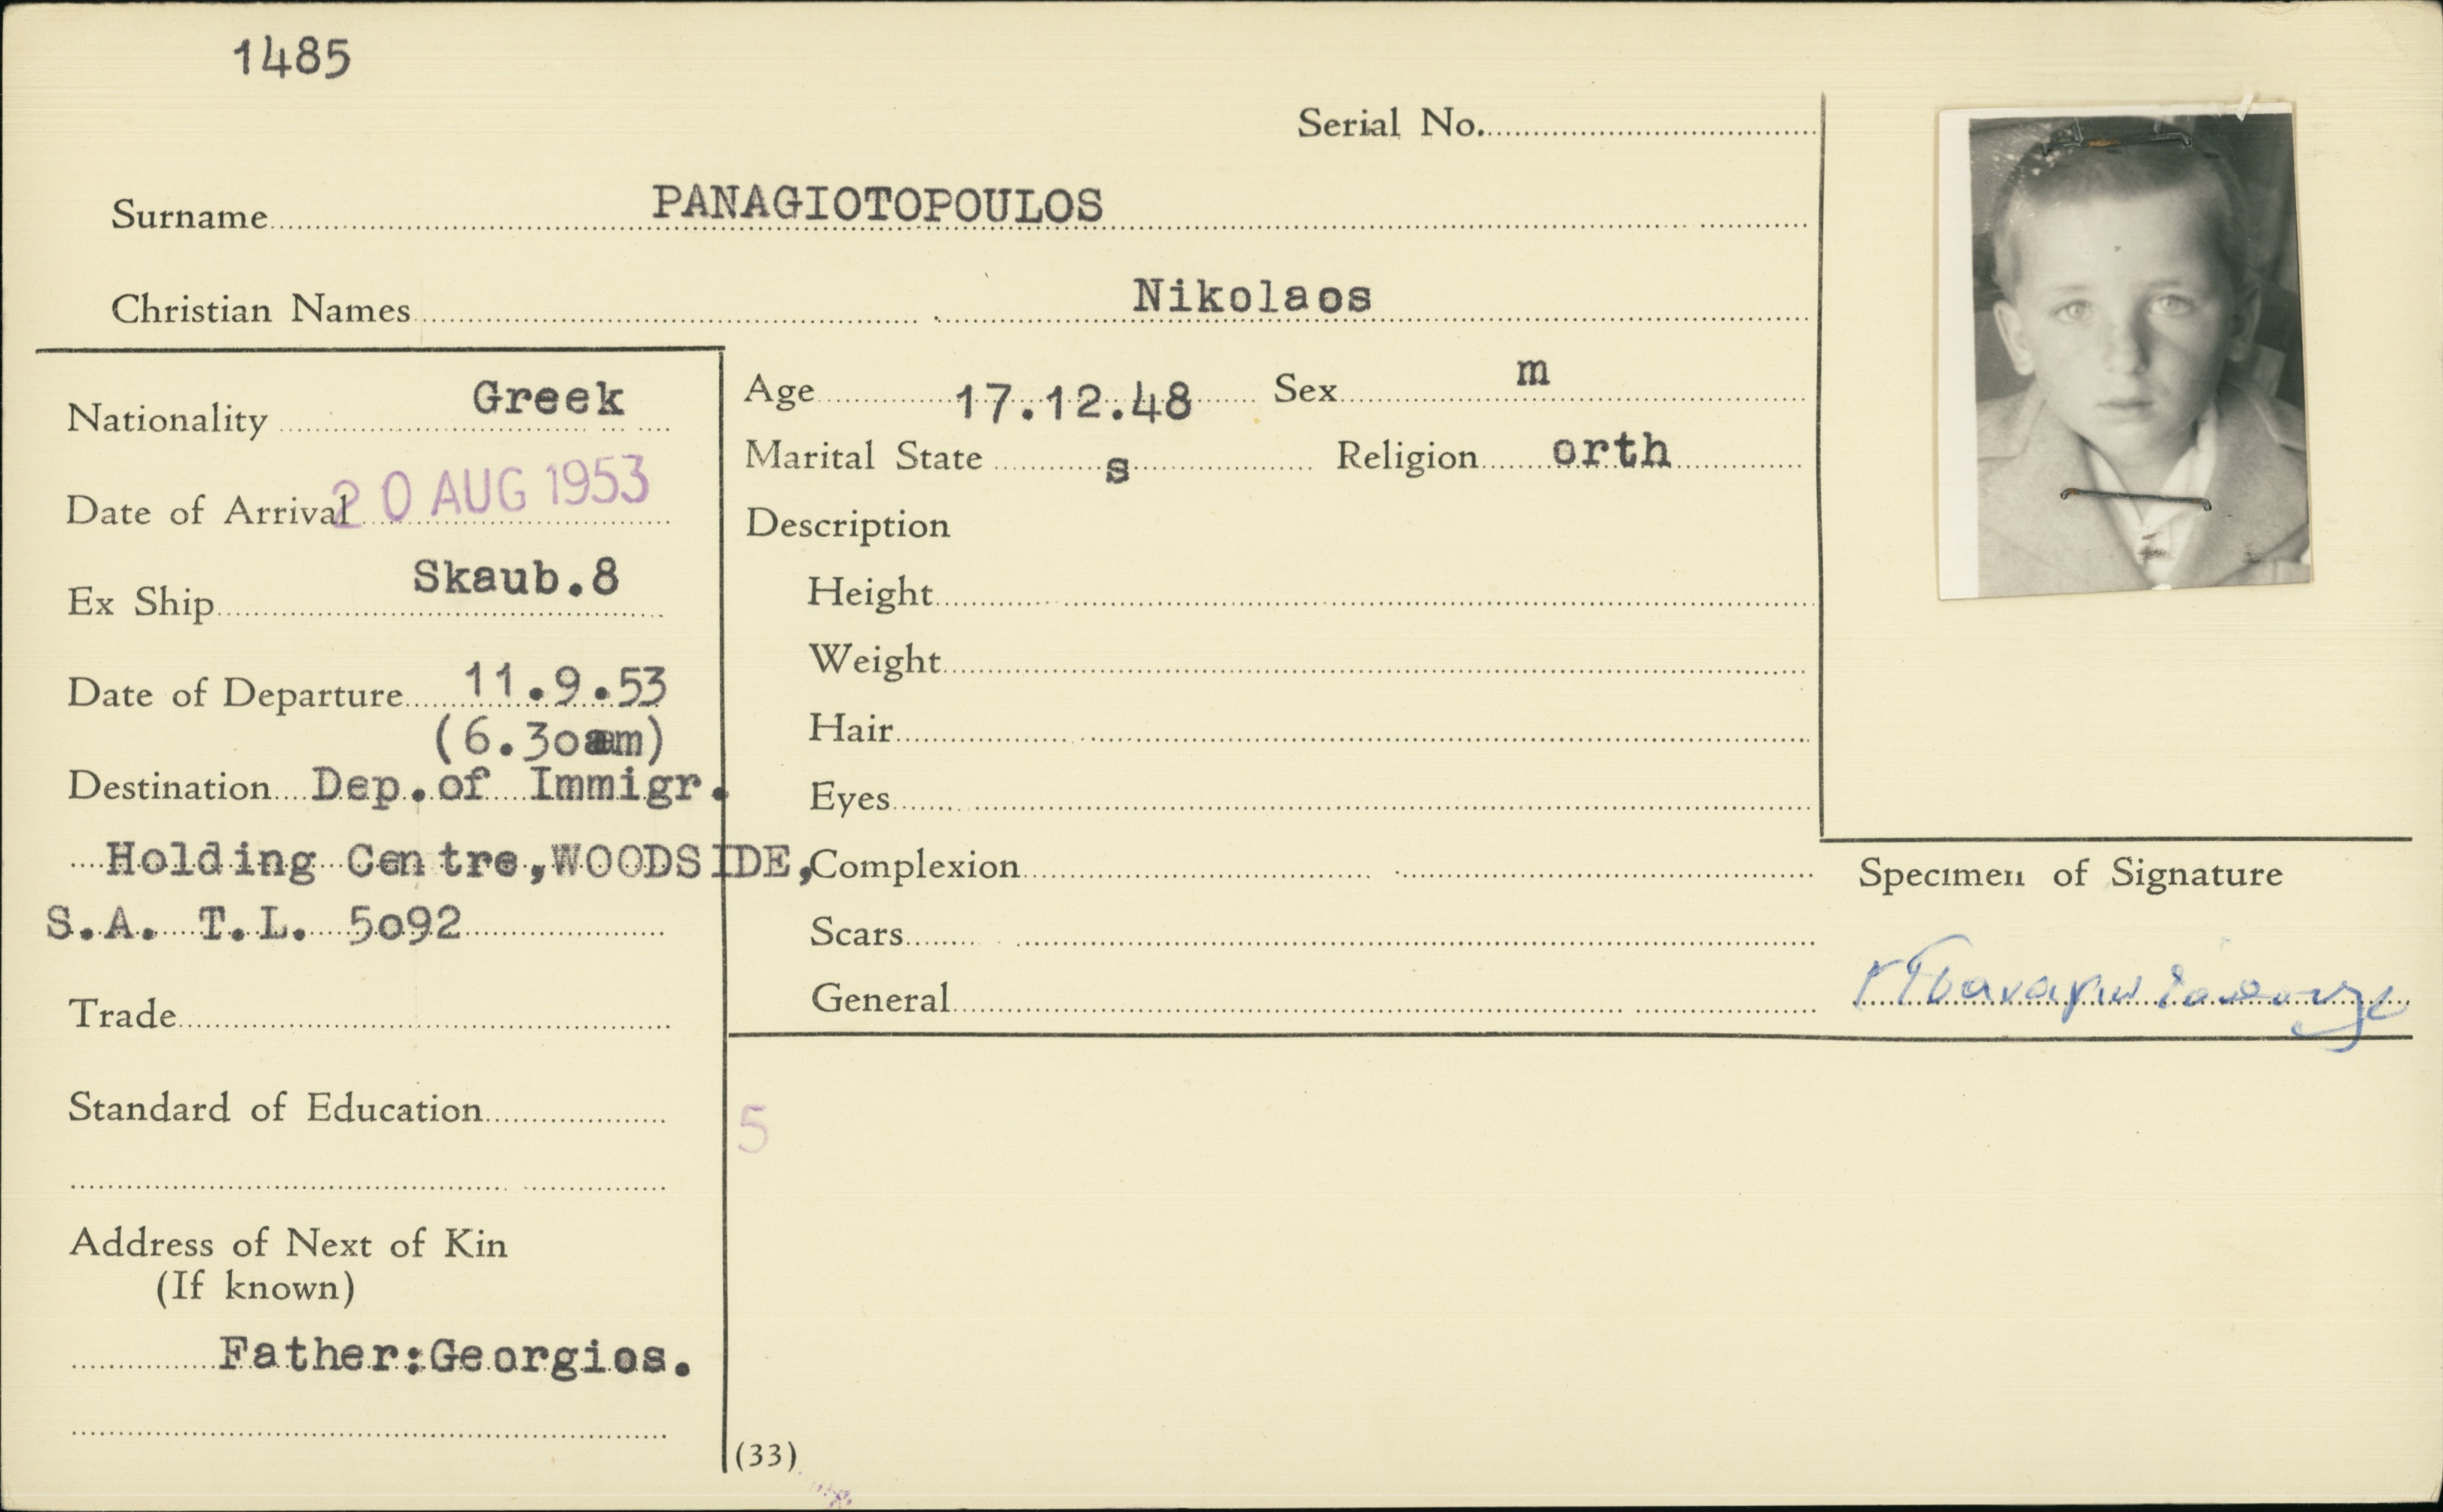 1485
Serial No.
Surname PANAGIOTOPOULOS
Christian Names Nikolaos
Nationality Greek
Date of Arrival 20 AUG 1953
Ex Ship Skaub.8
Date of Departure 11.9.53
(6.30am)
Destination Dep.of Immigr.
Holding Centre,WOODSIDE,
S.A. T.L. 5092
Trade
Standard of Education
Address of Next of Kin
(If known)
Father:Georgios.
Age 17.12.48 Sex m
Marital State s Religion orth
Description
Height
Weight
Hair
Eyes
Complexion
Scars
General
5
(33)
Specimen of Signature